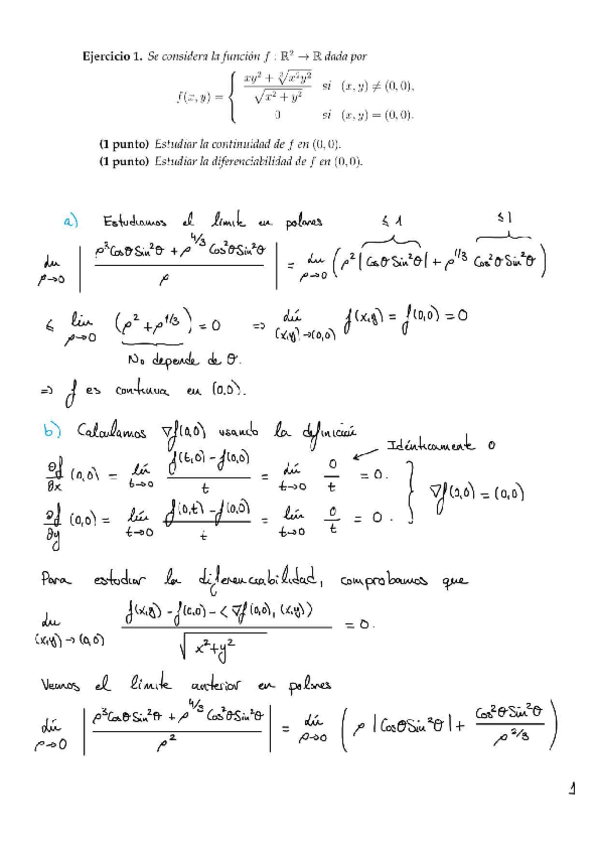 Ejercicio 1. Se considera la función f : ℝ² → ℝ dada por
f(x, y) = { (xy² + ∛(x²y²)) / √(x² + y²) si (x, y) ≠ (0, 0),
0 si (x, y) = (0, 0).
(1 punto) Estudiar la continuidad de f en (0, 0).
(1 punto) Estudiar la diferenciabilidad de f en (0, 0).
a) Estudiamos el límite en polares ≤ 1 ≤ 1
lím ρ→0 | (ρ³ Cosθ Sin²θ + ρ^{4/3} Cos²θ Sin²θ) / ρ | = lím ρ→0 (ρ² |Cosθ Sin²θ| + ρ^{1/3} Cos²θ Sin²θ)
≤ lím ρ→0 (ρ² + ρ^{1/3}) = 0 ⇒ lím (x,y)→(0,0) f(x,y) = f(0,0) = 0
No depende de θ.
⇒ f es continua en (0,0).
b) Calculamos ∇f(0,0) usando la definición
Idénticamente 0
∂f/∂x (0,0) = lím t→0 (f(t,0) - f(0,0)) / t = lím t→0 0/t = 0.
∇f(0,0) = (0,0)
∂f/∂y (0,0) = lím t→0 (f(0,t) - f(0,0)) / t = lím t→0 0/t = 0.
Para estudiar la diferenciabilidad, comprobamos que
lím (x,y)→(0,0) (f(x,y) - f(0,0) - <∇f(0,0), (x,y)>) / √(x²+y²) = 0.
Veamos el límite anterior en polares
lím ρ→0 | (ρ³ Cosθ Sin²θ + ρ^{4/3} Cos²θ Sin²θ) / ρ² | = lím ρ→0 (ρ |Cosθ Sin²θ| + Cos²θ Sin²θ / ρ^{2/3})
1